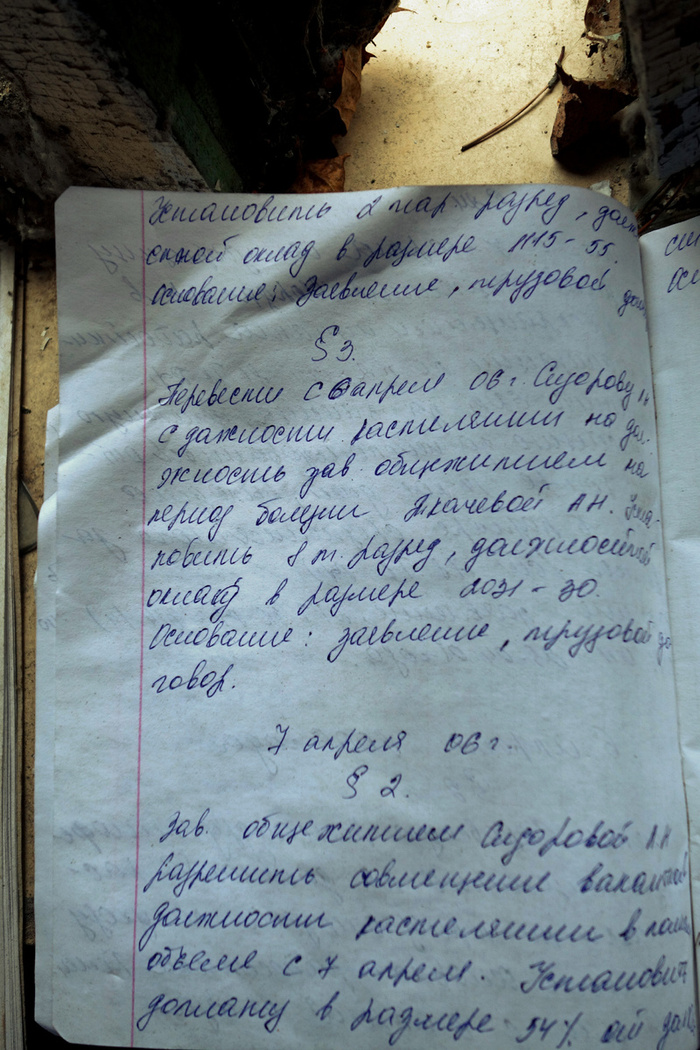 Установить 2 тар. разряд, долж
остной оклад в размере 1115-55.
Основание: заявление, трудовой дого
§ 3.
Перевести с 6 апреля 06 г. Сидорову
с должности кастелянши на дол-
жность зав. общежитием на
период болезни Ткачевой А.Н. Уста-
новить 8 т. разряд, должностной
оклад в размере 2031-30.
Основание: заявление, трудовой до
говор.
7 апреля 06 г.
§ 2.
Зав. общежитием Сидоровой
разрешить совмещение вакантной
должности кастелянши в полном
объеме с 7 апреля. Установить
доплату в размере 54% от долж